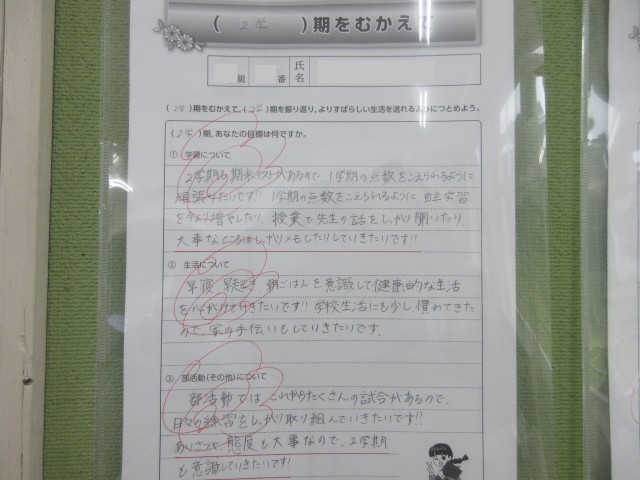 ( 2学 )期をむかえて
組 番 氏名
( 2学 )期をむかえて、( 2学 )期を振り返り、よりすばらしい生活を送れるようにつとめよう。
( 2学 )期、あなたの目標は何ですか。
① 学習について
2学期も期末テストがあるので、1学期の点数をこえられるように
頑張りたいです!! 1学期の点数をこえられるように 自主学習
を今より増やしたり、授業で先生の話をしっかり聞いたり、
大事なところはしっかりメモしたりしていきたいです!!
② 生活について
早寝 早起き 朝ごはんを意識して健康的な生活
を心がけて行きたいです!! 学校生活にも少し慣れてきた
ので 家の手伝いもしていきたいです。
③ 部活動(その他)について
部活動では これからたくさんの試合があるので、
日々の練習をしっかり取り組んでいきたいです!!
あいさつや 態度も大事なので、2学期
も意識していきたいです!